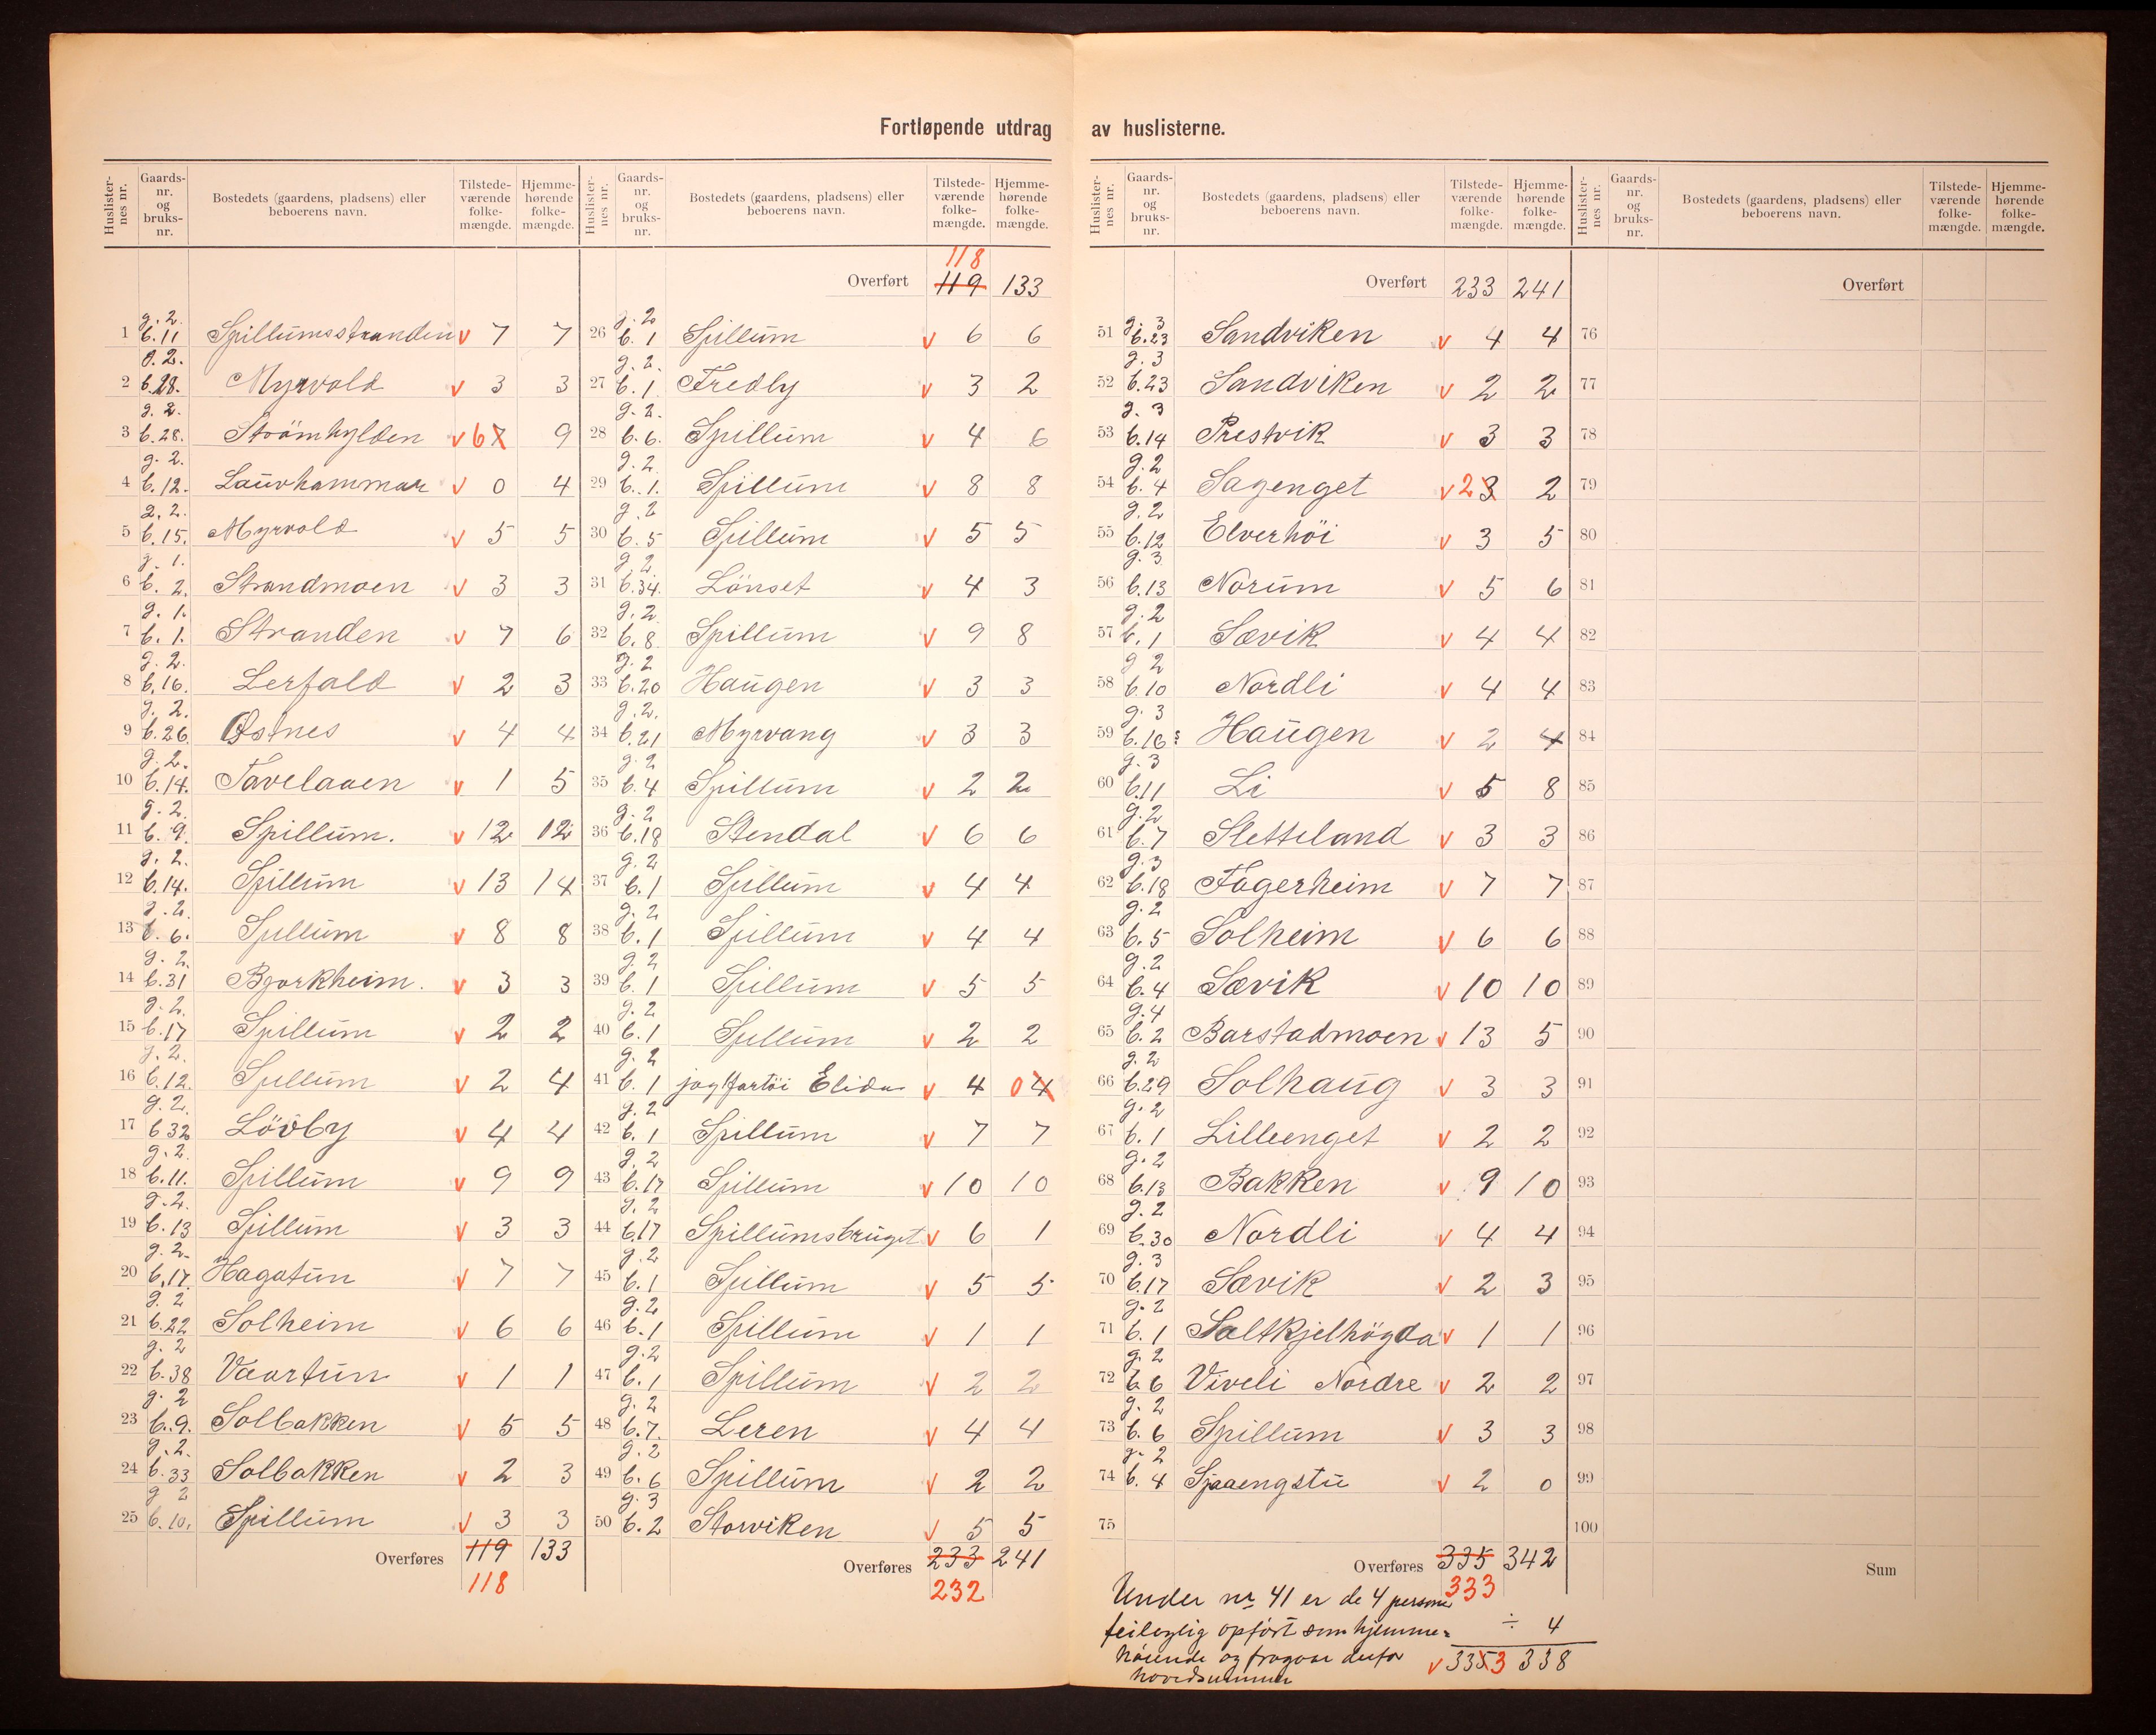 Fortløpende utdrag av huslisterne.
Huslisternes nr. Gaards-nr. og bruks-nr. Bostedets (gaardens, pladsens) eller beboerens navn. Tilstede-værende folke-mængde. Hjemme-hørende folke-mængde.
1 g. 2. b. 11 Spillumsstranden v 7 7
2 g. 2. b. 28. Myrvold v 3 3
3 g. 2. b. 28. Strömhylden v 6 7 9
4 g. 2. b. 12. Lauvhammar v 0 4
5 g. 2. b. 15. Myrvold v 5 5
6 g. 1. b. 2. Strandmoen v 3 3
7 g. 1. b. 1. Stranden v 7 6
8 g. 2. b. 16. Lerfald v 2 3
9 g. 2. b. 26. Østnes v 4 4
10 g. 2. b. 14. Tavelaaen v 1 5
11 g. 2. b. 9. Spillum. v 12 12
12 g. 2. b. 14. Spillum v 13 14
13 g. 2. b. 6. Spillum v 8 8
14 g. 2. b. 31 Bjorkheim. v 3 3
15 g. 2. b. 17 Spillum v 2 2
16 g. 2. b. 12. Spillum v 2 4
17 g. 2. b 32 Lövby v 4 4
18 g. 2. b. 11. Spillum v 9 9
19 g. 2. b. 13 Spillum v 3 3
20 g. 2. b. 17. Hagatun v 7 7
21 g. 2 b. 22 Solheim v 6 6
22 g. 2 b. 38 Vaartun v 1 1
23 g. 2 b. 9. Solbakken v 5 5
24 g. 2. b. 33 Solbakken v 2 3
25 g 2 b. 10. Spillum v 3 3
Overføres 119 133
118
Huslisternes nr. Gaards-nr. og bruks-nr. Bostedets (gaardens, pladsens) eller beboerens navn. Tilstede-værende folke-mængde. Hjemme-hørende folke-mængde.
118
Overført 119 133
26 g. 2 b. 1 Spillum v 6 6
27 g. 2. b. 1. Fredly v 3 2
28 g. 2. b. 6. Spillum v 4 6
29 g. 2 b. 1. Spillum v 8 8
30 g. 2 b. 5 Spillum v 5 5
31 g. 2 b. 34. Lönset v 4 3
32 g. 2 b. 8 Spillum v 9 8
33 g. 2 b. 20 Haugen v 3 3
34 g. 2. b. 21 Myrvang v 3 3
35 g. 2 b. 4 Spillum v 2 2
36 g. 2 b. 18 Stendal v 6 6
37 g. 2 b. 1 Spillum v 4 4
38 g. 2 b. 1 Spillum v 4 4
39 g. 2 b. 1 Spillum v 5 5
40 g. 2 b. 1 Spillum v 2 2
41 g. 2 b. 1 jagtfartöi Elida v 4 0 4
42 g. 2 b. 1 Spillum v 7 7
43 g. 2 b. 17 Spillum v 10 10
44 g. 2 b. 17 Spillumsbruget v 6 1
45 g. 2 b. 1 Spillum v 5 5
46 g. 2 b. 1 Spillum v 1 1
47 g. 2 b. 1 Spillum v 2 2
48 g. 2 b. 7. Leren v 4 4
49 g. 2 b. 6 Spillum v 2 2
50 g. 3 b. 2 Storviken v 5 5
Overføres 233 241
232
Huslisternes nr. Gaards-nr. og bruks-nr. Bostedets (gaardens, pladsens) eller beboerens navn. Tilstede-værende folke-mængde. Hjemme-hørende folke-mængde.
Overført 233 241
51 g. 3 b. 23 Sandviken v 4 4
52 g. 3 b. 23 Sandviken v 2 2
53 g. 3 b. 14 Prestvik v 3 3
54 g. 2 b. 4 Sagenget v 2 3 2
55 g. 2 b. 12 Elverhöi v 3 5
56 g. 3 b. 13 Norum v 5 6
57 g. 2 b. 1 Sævik v 4 4
58 g 2 b. 10 Nordli v 4 4
59 g. 3 b. 16 Haugen v 2 4
60 g. 3 b. 11 Li v 5 8
61 g. 2 b. 7 Sletteland v 3 3
62 g. 3 b. 18 Fagerheim v 7 7
63 g. 2 b. 5 Solheim v 6 6
64 g. 2 b. 4 Sævik v 10 10
65 g. 4 b. 2 Barstadmoen v 13 5
66 g. 2 b. 29 Solhaug v 3 3
67 g. 2 b. 1 Lilleenget v 2 2
68 g. 2 b. 13 Bakken v 9 10
69 g. 2 b. 30 Nordli v 4 4
70 g. 3 b. 17 Sævik v 2 3
71 g. 2 b. 1 Saltkjelhögda v 1 1
72 g. 2 b. 6 Viveli Nordre v 2 2
73 g. 2 b. 6 Spillum v 3 3
74 g. 2 b. 4 Spaaengstu v 2 0
75
Overføres 335 342
333
Under nr 41 er de 4 personer
feilagtig opført som hjemme= ÷ 4
hørende og fragaar derfor v 335 3 338
hovedsummen
Huslisternes nr. Gaards-nr. og bruks-nr. Bostedets (gaardens, pladsens) eller beboerens navn. Tilstede-værende folke-mængde. Hjemme-hørende folke-mængde.
Overført
76
77
78
79
80
81
82
83
84
85
86
87
88
89
90
91
92
93
94
95
96
97
98
99
100
Sum